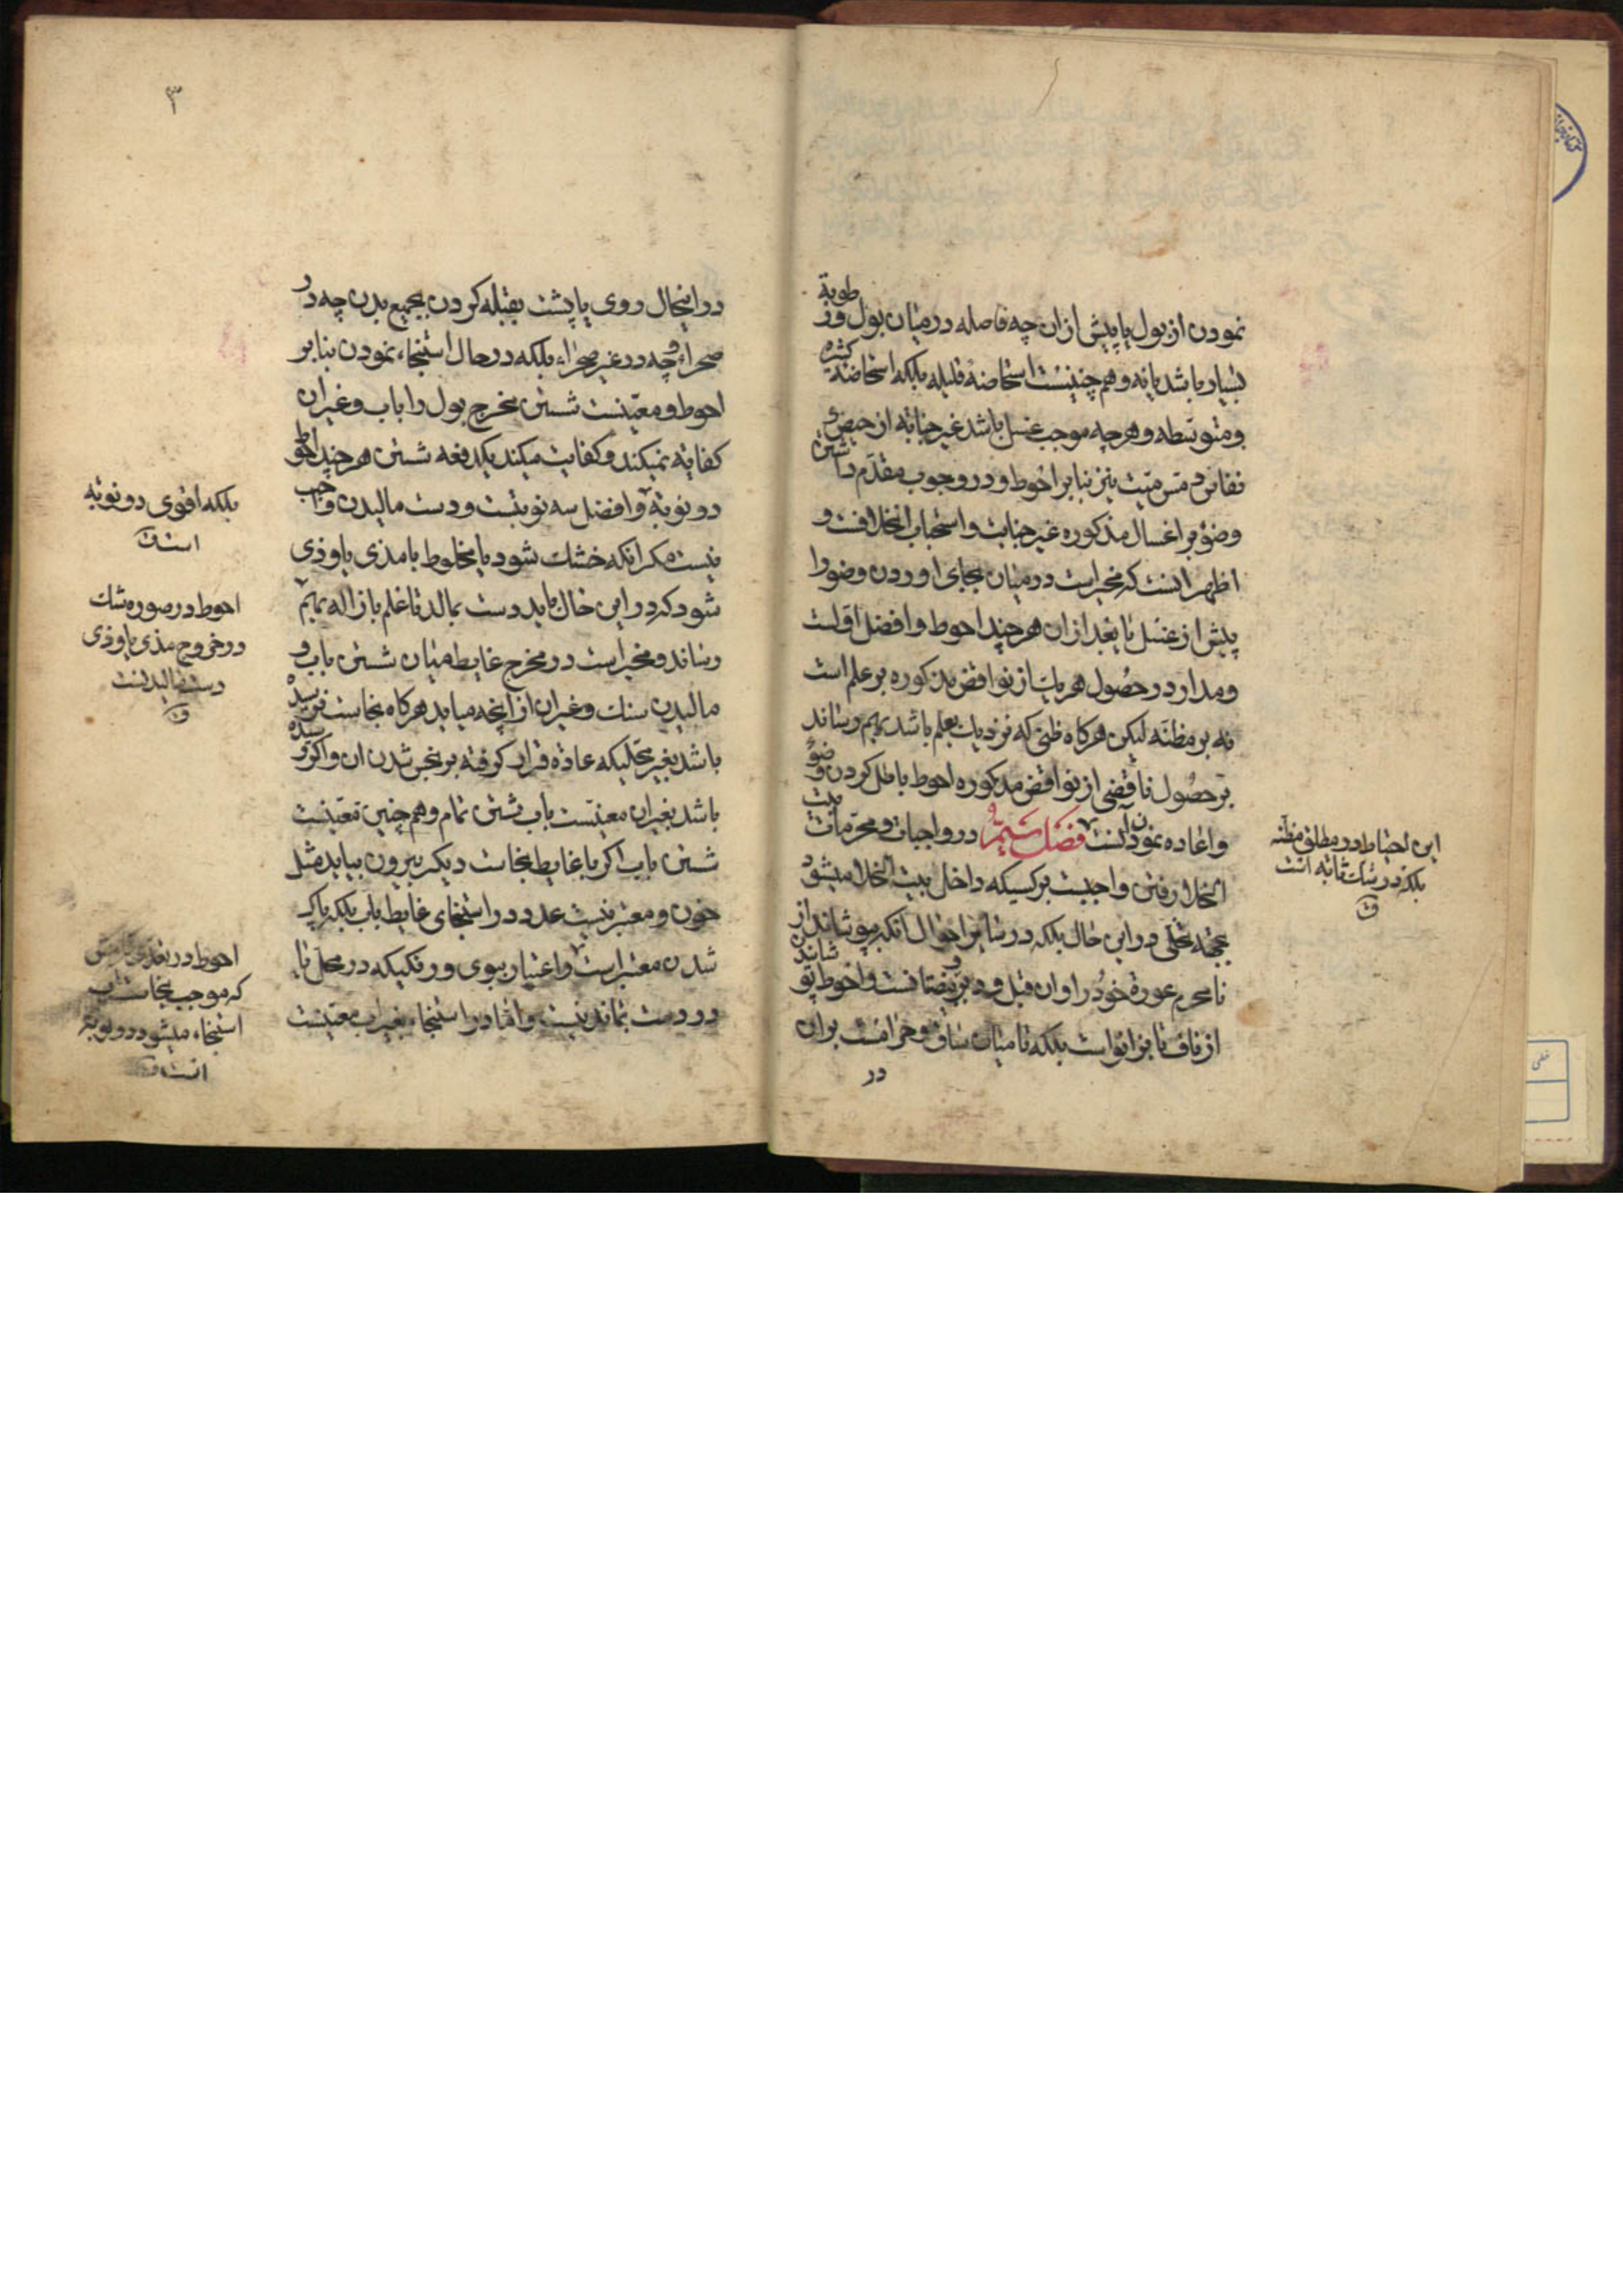 نمودن از بول یا پیش از ان چه فاصله درمیان بول و رطوبة
بسیار باشد یا نه و هم چنینست استحاضهٔ قلیله بلکه استحاضهٔ کثیره
و متوسطه و هرچه موجب غسل باشد غیر جنابة از حیض و
نفاس و مس میت نیز بنا بر احوط و در وجوب مقدم داشتن
وضوء بر اغسال مذکوره غیر جنابت و استحباب ان خلافست و
اظهر انست که مخیر است درمیان بجای اوردن وضو را
پیش از غسل یا بعد از ان هرچند احوط و افضل اولست
و مدار در حصول هر یک از نواقض مذکوره بر علم است
نه بر مظنه لیکن هرکاه ظنی که نزدیک بعلم باشد بهم رساند
بر حصول ناقضی از نواقض مذکوره احوط باطل کردن وضوء
و اعاده نمودن انست فصل سیم در واجبات و محرمات بیت
الخلا رفتن واجبست بر کسیکه داخل بیت الخلا میشود
بجهة تخلی در این حال بلکه در سایر احوال انکه بپوشاند از
نامحرم عورة خود را و ان قبل و دبر و بیضتانست و احوط پوشاندن
از ناف تا بزانو است بلکه تا میان ساق و حرامست بر ان
در
این احتیاط در مطلق مظنه
بلکه در شک ثابة است
ق
۳
در اینحال روی یا پشت بقبله کردن بجمیع بدن چه در
صحراء و چه در غیر صحراء بلکه در حال استنجاء نمودن بنا بر
احوط و معینست شستن مخرج بول را باب و غیر ان
کفایة نمیکند و کفایت میکند یکدفعه شستن هرچند احوط
دو نوبة و افضل سه نوبتست و دست مالیدن واجب
نیست مکر انکه خشک شود یا مخلوط با مذی یا وذی
شود که در این حال باید دست بمالد تا علم بازاله بهم
رساند و مخیر است در مخرج غایط میان شستن باب و
مالیدن سنک و غیر ان از انچه میاید هرکاه نجاست نرسیده
باشد بغیر محلیکه عادة قرار کرفته بر نجس شدن ان و اکر رسیده
باشد بغیر ان معینست باب شستن تمام و هم چنین معینست
شستن باب اکر با غایط نجاست دیکر بیرون بیاید مثل
خون و معتبر نیست عدد در استنجای غایط باب بلکه پاک
شدن معتبر است و اعتبار ببوی و رنکیکه در محل یا
در دست بماند نیست و اما در استنجاء بغیر اب معینست
بلکه اقوی دو نوبة
است ق
احوط در صورة شک
در خروج مذی یا وذی
دست مالیدنست
ق
احوط در تعدی
که موجب نجاست
استنجاء میشود دو نوبة
است ق